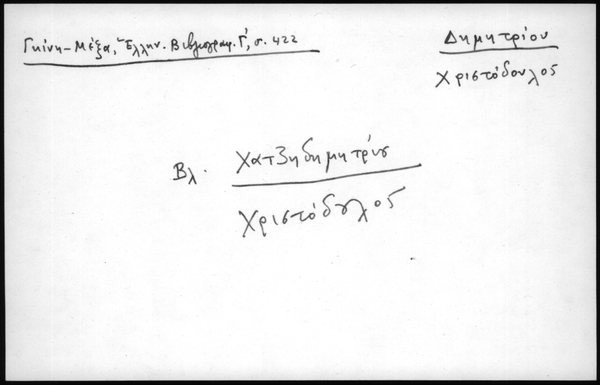 Γκίνη-Μέξα, Ἑλλην. Βιβλιογραφ. Γ', σ. 422
Δημητρίου
Χριστόδουλος
Βλ. Χατζηδημητρίου
Χριστόδουλος